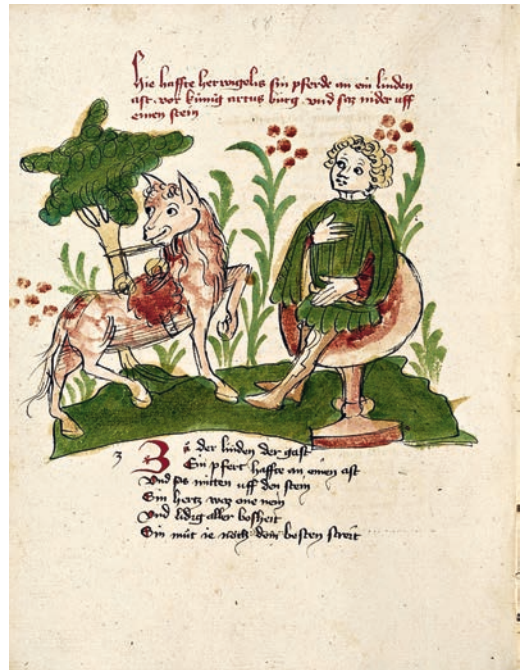 Hie haffte her wigelis sin pferde an ein linden
ast · vor künig artus burg · vnd saz nider uff
einen stein
Zů der linden der gast
Sin pfert haffte an einen ast
Vnd sas mitten uff den stein
Sin hertz waz one nein
Vnd lidig aller bosheit
Sin můt ie noch dem bosten streit